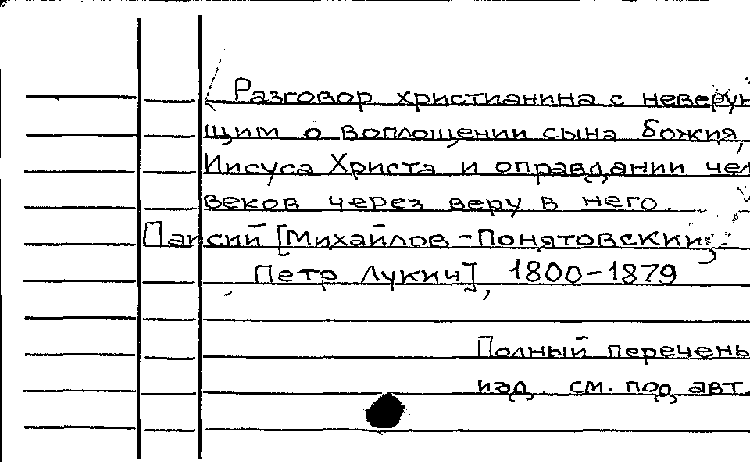 Разговор христианина с неверую
щим о воплощении сына Божия,
Иисуса Христа и оправдании чел
веков через веру в него.
Паисий [Михайлов-Понятовский,
Петр Лукич], 1800-1879
Полный перечень
изд. см. под авт.